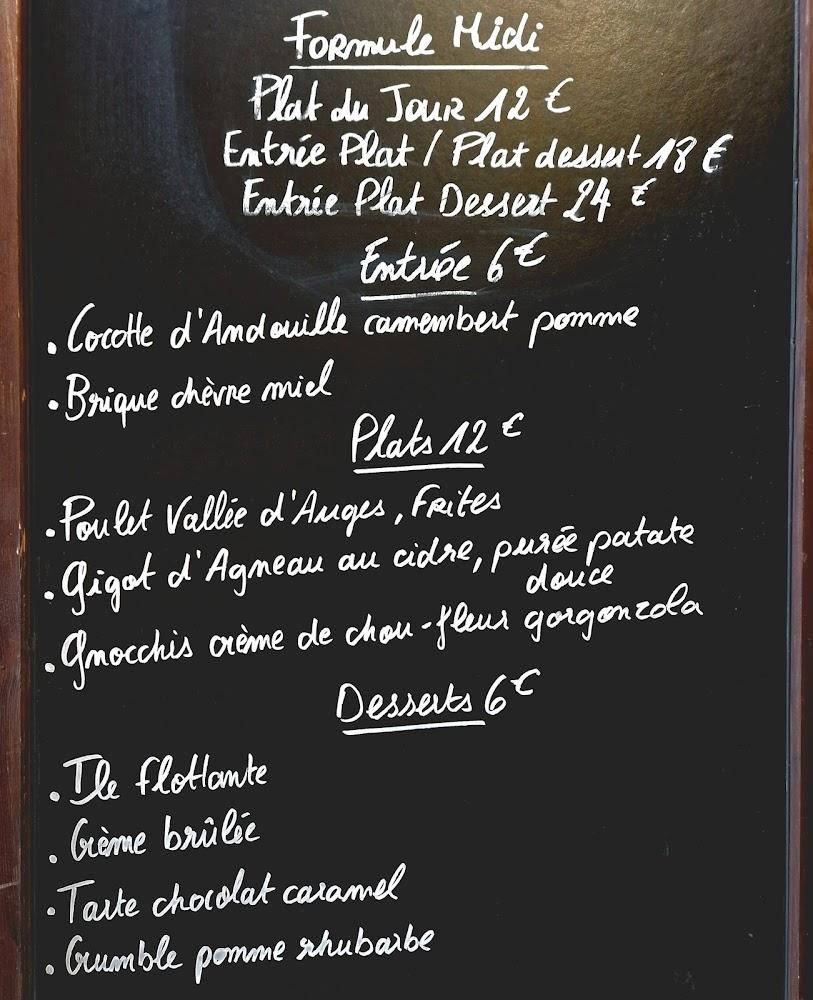 Formule Midi
Plat du Jour 12 €
Entrée Plat / Plat dessert 18 €
Entrée Plat Dessert 24 €
Entrée 6€
. Cocotte d'Andouille camembert pomme
. Brique chèvre miel
Plats 12 €
. Poulet Vallée d'Auges, Frites
. Gigot d'Agneau au cidre, purée patate
douce
. Gnocchis crème de chou-fleur gorgonzola
Desserts 6€
. Ile flottante
. Crème brûlée
. Tarte chocolat caramel
. Crumble pomme rhubarbe